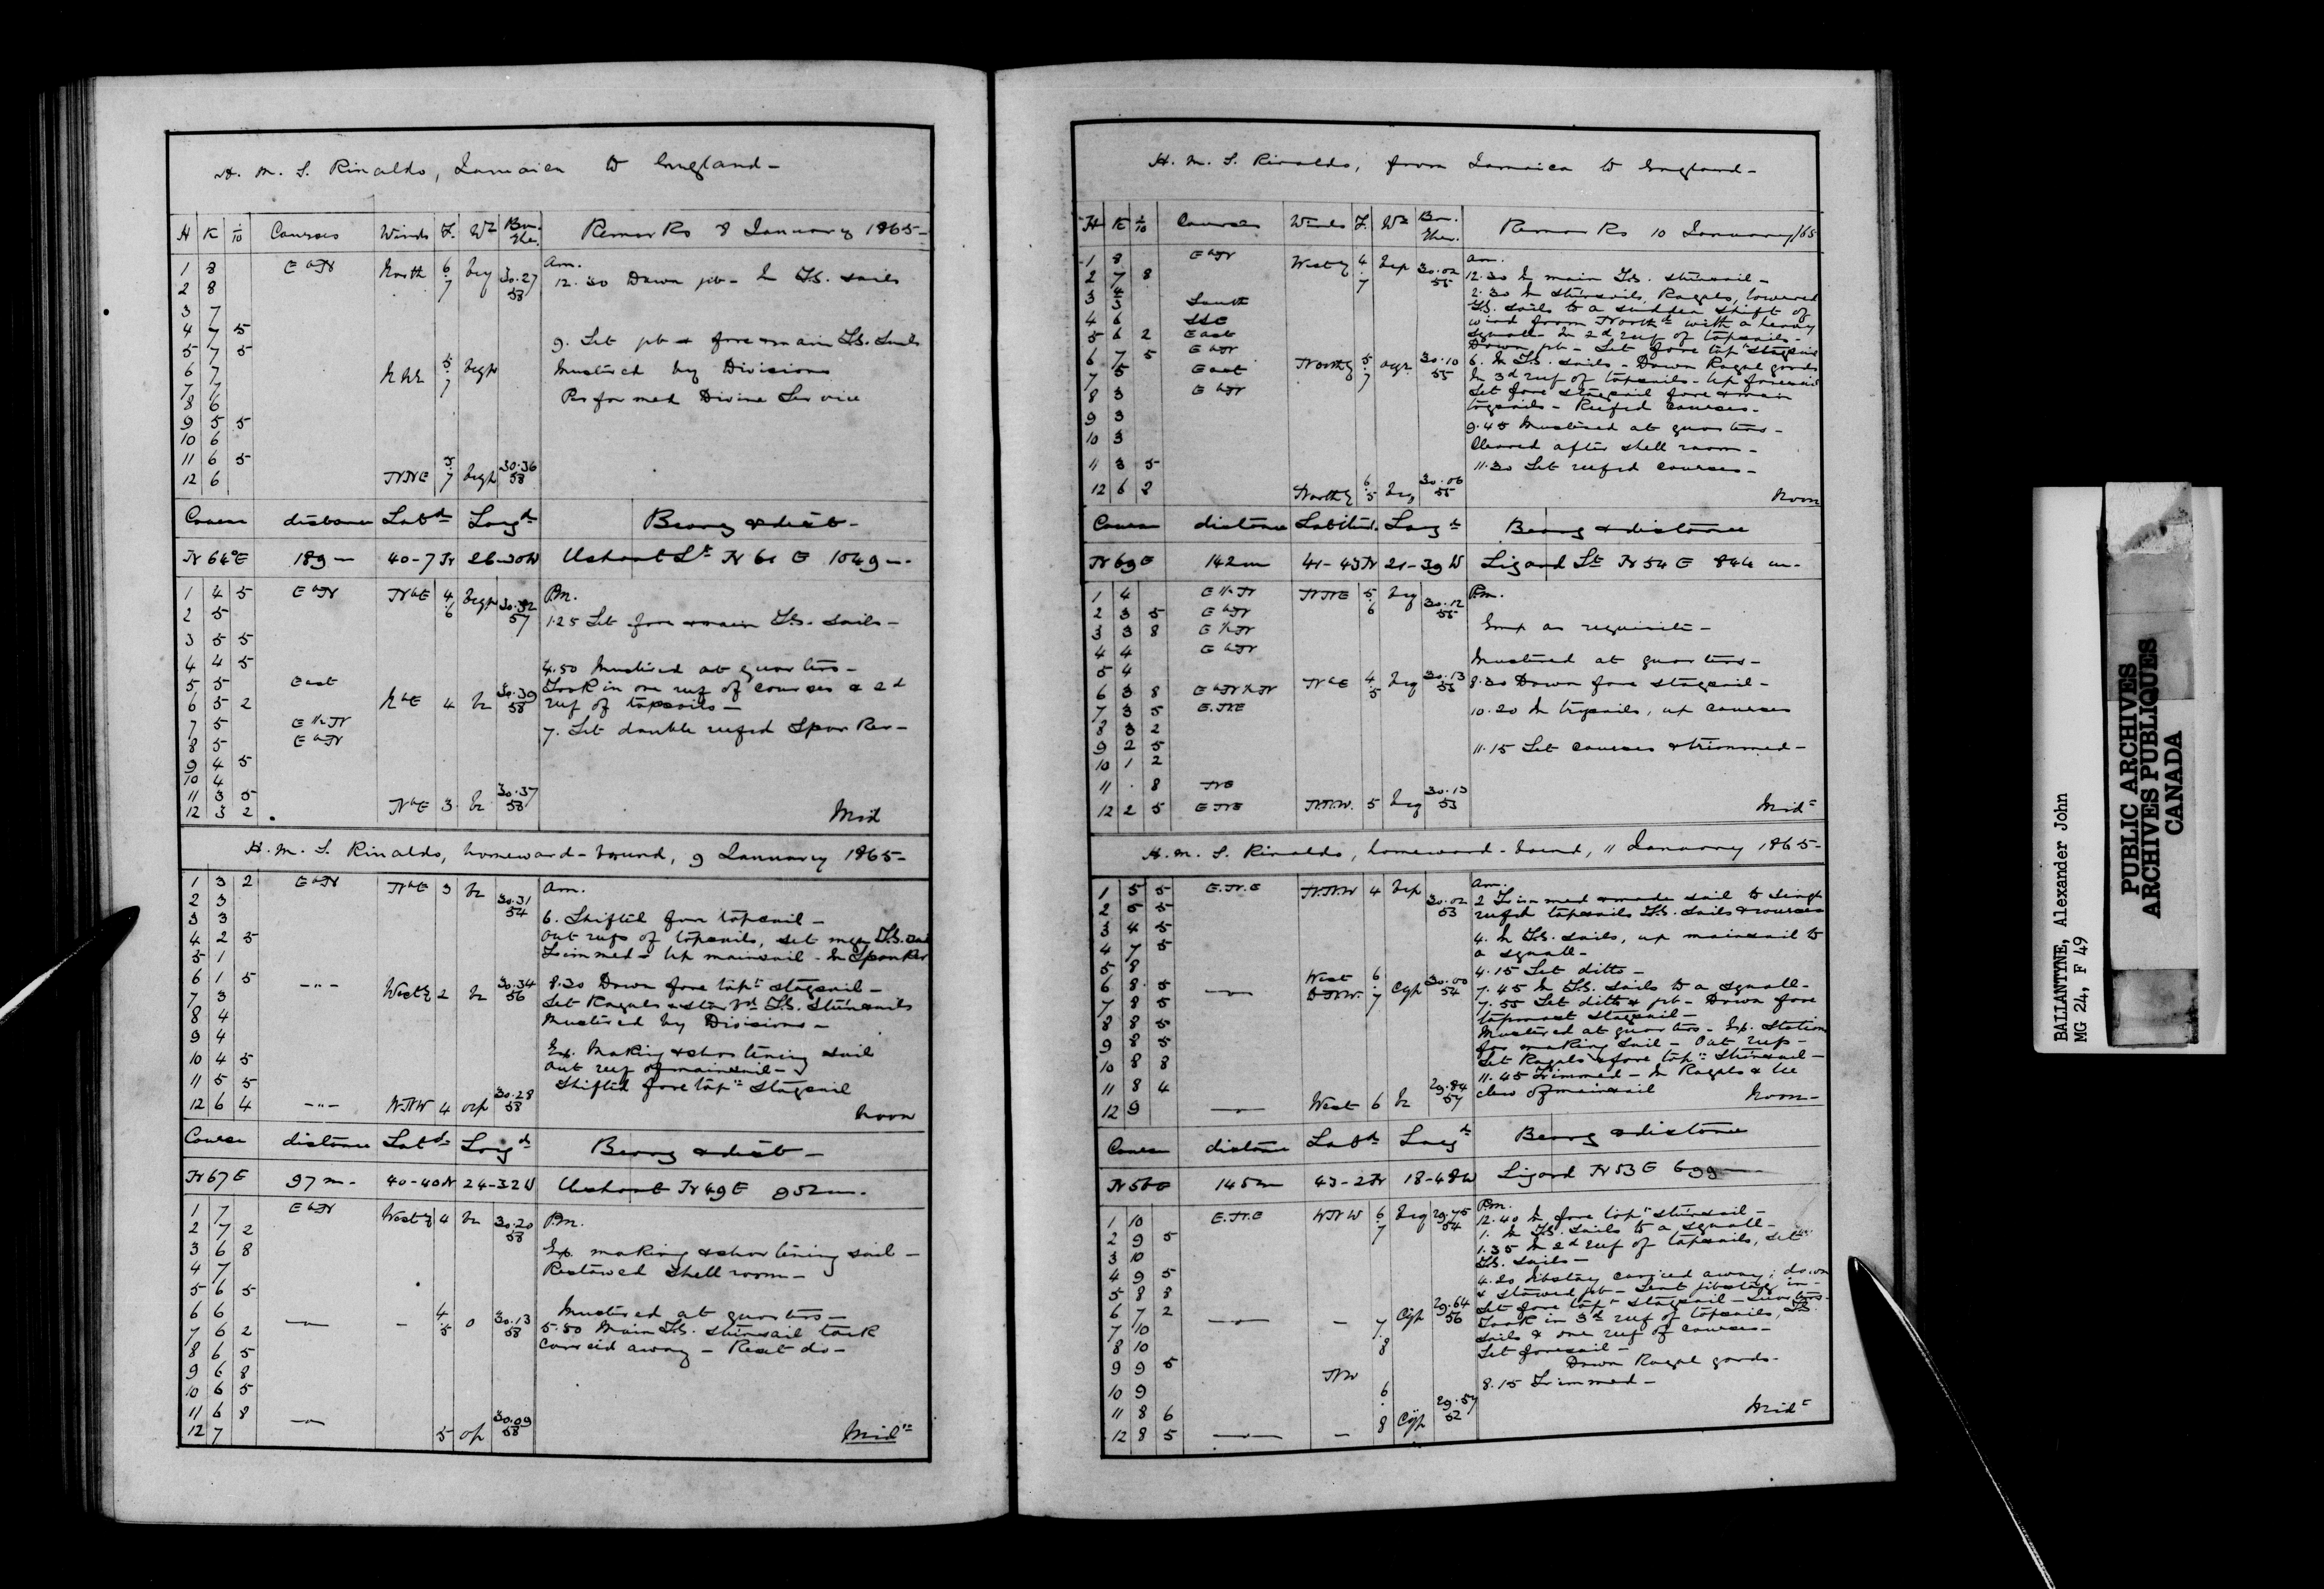 H. M. S. Rinaldo, Jamaica to England -
H K 1/10 Courses Winds F. Wr Bar. Ther. Remarks 8 January 1865 -
am.
1 8 E b N North 6.7 bcq 30.27 58 12.30 Down jib - In T.S. sails
2 8
3 7
4 7 5
9. Set jib & fore & main T.S. Sails
5 7 5
6 7 5.7 bcqp Mustered by Divisions
7 7
Performed Divine Service
8 6
9 5 5
10 6
11 6 5
12 6 NNE 5.7 bcqp 30.36 58
Course distance Latd Longd Bearg & dist -
N 64° E 189 m 40-7 N 26-30 W Ushant Lt N 61 E 1049 m -
1 4 5 E b N N b E 4.6 bcqp 30.32 57 P.m.
2 5 1.25 Set fore & main T.S. sails -
3 5 5
4 4 5 4.50 Mustered at quarters -
5 5 East Took in one reef of courses & 2d
6 5 2 N b E 4 bc 30.39 58 reef of topsails -
7 5 E ½ N 7. Set double reefed Spanker -
8 5 E b N
9 4 5
10 4
11 3 5
12 3 2 N b E 3 bc 30.37 58 Mid
H. M. S. Rinaldo, homeward-bound, 9 January 1865 -
1 3 2 E b N N b E 3 bc 30.31 54 am.
2 3
3 3 6. Shifted fore topsail -
4 2 5 Out reefs of topsails, set T.S. sails
5 1 Trimmed - Up mainsail - In Spanker
6 1 5 -"- Westy 2 bc 30.34 56 8.30 Down fore topt staysail -
7 3 Set Royals & starbd T.S. Stunsails
8 4 Mustered by Divisions -
9 4
10 4 5 Ex. Making & shortening sail
11 5 5 Out reef of mainsail -
Shifted fore topt Staysail
12 6 4 -"- WNW 4 ocp 30.28 58 Noon
Course distance Latd Longd Bearg & dist -
N 67 E 97 m - 40-40 N 24-32 W Ushant N 49 E 952 m.
1 7 E b N Westy 4 bc 30.20 58 P.m.
2 7 2
3 6 8 Ex. making & shortening sail -
4 7 Restowed shell room -
5 6 5
6 6 -"- - 4.5 o 30.13 58 Mustered at quarters -
7 6 2 5.50 Main T.S. stunsail tack
8 6 5 carried away - Reset do -
9 6 8
10 6 5
11 6 8
12 7 -"- 5 op 30.09 58 Midt
H. M. S. Rinaldo, from Jamaica to England -
H K 1/10 Courses Winds F. Wr Bar. Ther. Remarks 10 January/65
am.
1 8 E b N Westy 4.7 bcp 30.02 55 12.30 In main T.S. stunsail -
2 7 8 2.30 In stunsails, Royals, lowered
3 4 3 South T.S. sails to a sudden shift of
4 6 SSE wind from Northd with a heavy
5 6 2 East squall - In 2d reef of topsails -
Down jib - Set fore topt staysail
6 7 5 E b N Northy 5.7 30.10 55 6. In T.S. sails - Down Royal yards
7 5 East In 3d reef of topsails - Up foresail
8 3 E b N Set fore staysail fore & main
trysails - Reefed Courses -
9 3 9.45 Mustered at quarters -
10 3 Cleared after shell room -
11 3 5 11.30 Set reefed courses -
12 6 2 Northy 6.5 bcq 30.06 55 Noon
Course distance Latitude. Longd Bearg & distance
N 69 E 142 m 41-43 N 21-39 W Lizard Lt N 54 E 844 m -
1 4 E ½ N NNE 5.6 bcq 30.12 55 P.m.
2 3 5 E b N
3 3 8 E ½ N Emp as requisite -
4 4 E b N
5 4 Mustered at quarters -
6 3 8 E b N ½ N N b E 4.5 bcq 30.13 53 8.30 Down fore staysail -
7 3 5 E.N.E 10.20 In trysails, up courses
8 3 2
9 2 5 11.15 Set courses & trimmed -
10 1 2
11 . 8 NE
12 2 5 ENE N.N.W. 5 bcq 30.13 53 Midt
H. M. S. Rinaldo, homeward-bound, 11 January 1865 -
1 5 5 E.N.E N.N.W 4 bcp 30.02 53 am.
2 5 5 2 Trimmed & made sail to single
3 4 5 reefed topsails T.S. sails & courses
4 7 5 4. In T.S. sails, up mainsail to
5 8 a squall -
4.15 Set ditto -
6 8 5 -"- West 6.7 cqp 30.00 54 7.45 In T.S. sails to a squall -
7 8 5 W.N.W. 7.55 Set ditto & jib - Down fore
topmast staysail -
8 8 5 Mustered at quarters - Ex. Station
9 8 5 for making sail - Out reef -
10 8 8 Set Royals & fore topt Stunsail -
11 8 4 11.45 Trimmed - In Royals & lee
12 9 -"- West 6 bc 29.84 57 clew of mainsail Noon -
Course distance Latd Longd Bearg & distance
145 m 43-2 N 18-48 W Lizard N 53 E 699
1 10 E.N.E WNW 6.7 bcq 29.75 54 P.m.
12.40 In fore topt stunsail -
2 9 5 1. In T.S. sails to a squall -
3 10 1.35 In 2d reef of topsails, set
T.S. sails -
4 9 5 4.20 Jibstay carried away; down
5 8 8 & stowed jib - Sent jibstay in -
6 7 2 -"- - 7.8 cqp 29.64 56 Set fore topt staysail - Quarters -
7 10 Took in 3d reef of topsails, T.S.
8 10 sails & one reef of courses -
Set foresail -
9 9 5 NW Down Royal yards -
10 9 8.15 Trimmed -
11 8 6
12 8 5 -"- - 6.8 cqp 29.57 52 Midt
BALLANTYNE, Alexander John
MG 24, F 49
PUBLIC ARCHIVES
ARCHIVES PUBLIQUES
CANADA